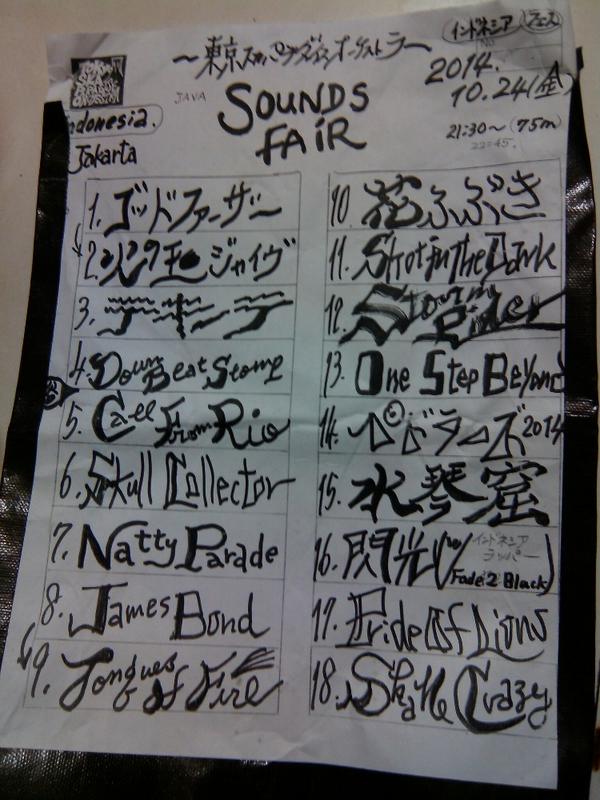 インドネシア フェス
～東京スカパラダイスオーケストラ～
2014.
10.24(金)
JAVA
SOUNDS
FAIR
ndonesia.
Jakarta
21:30～(75m)
22:45.
1. ゴッドファーザー
2. 火の玉ジャイヴ
3.
4. Down Beat Stomp
5. Call From Rio
6. Skull Collector
7. Natty Parade
8. James Bond
9. Tongues Of Fire
10. 花ふぶき
11. Shot in the Dark
12. Storm Rider
13. One Step Beyond
14. ペドラーズ2014
15. 水琴窟
16. 閃光(w/インドネシア
ラッパー
Fade 2 Black)
17. Pride Of Lions
18. Skalle Crazy